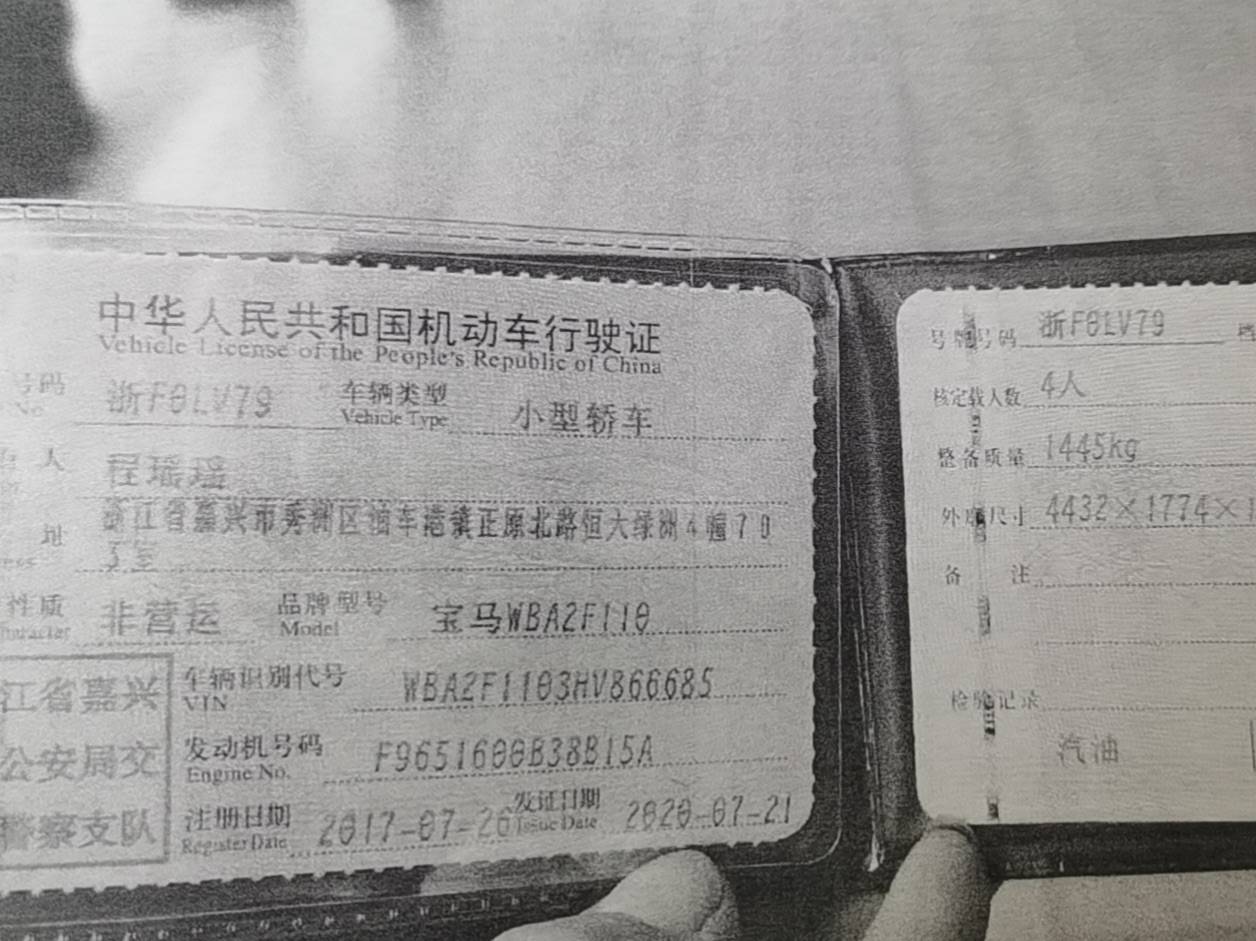 中华人民共和国机动车行驶证
Vehicle License of the People's Republic of China
号码 浙F0LV79 车辆类型 小型轿车
No. Vehicle Type
人 程瑶瑶
址 浙江省嘉兴市秀洲区油车港镇正原北路恒大绿洲4幢70
室
性质 非营运 品牌型号 宝马WBA2F110
Character Model
江省嘉兴
公安局交
警察支队
车辆识别代号 WBA2F1103HV866685
VIN
发动机号码 F9651600B38B15A
Engine No.
注册日期 2017-07-26 发证日期 2020-07-21
Register Date Issue Date
号牌号码 浙F0LV79
核定载人数 4人
整备质量 1445kg
外廓尺寸 4432×1774×
备 注
检验记录
汽油